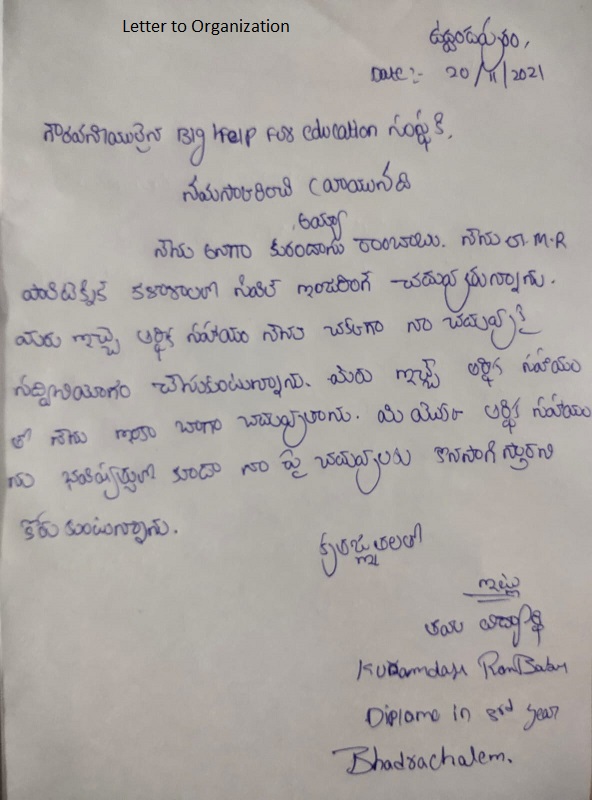 Letter to Organization
ఉద్దండపురం,
Date:- 20/11/2021
గౌరవనీయులైన Big Help For Education సంస్థకి,
నమస్కరించి వ్రాయునది
అయ్యా
నేను అనగా కురందాసు రాంబాబు. నేను A.M.R
పాలిటెక్నిక్ కళాశాలలో సివిల్ ఇంజనీరింగ్ చదువుచున్నాను.
మీరు ఇచ్చే ఆర్థిక సహాయం నేను చక్కగా నా చదువుకై
సద్వినియోగం చేసుకుంటున్నాను. మీరు ఇచ్చే ఆర్థిక సహాయం
తో నేను ఇంకా బాగా చదువుతాను. మీ యొక్క ఆర్థిక సహాయం
ను భవిష్యత్తులో కూడా నా పై చదువులకు కొనసాగిస్తారని
కోరుకుంటున్నాను.
కృతజ్ఞతలతో
ఇట్లు
తమ విద్యార్థి
Kuramdasu RamBabu
Diplome in 3rd year
Bhadrachalem.